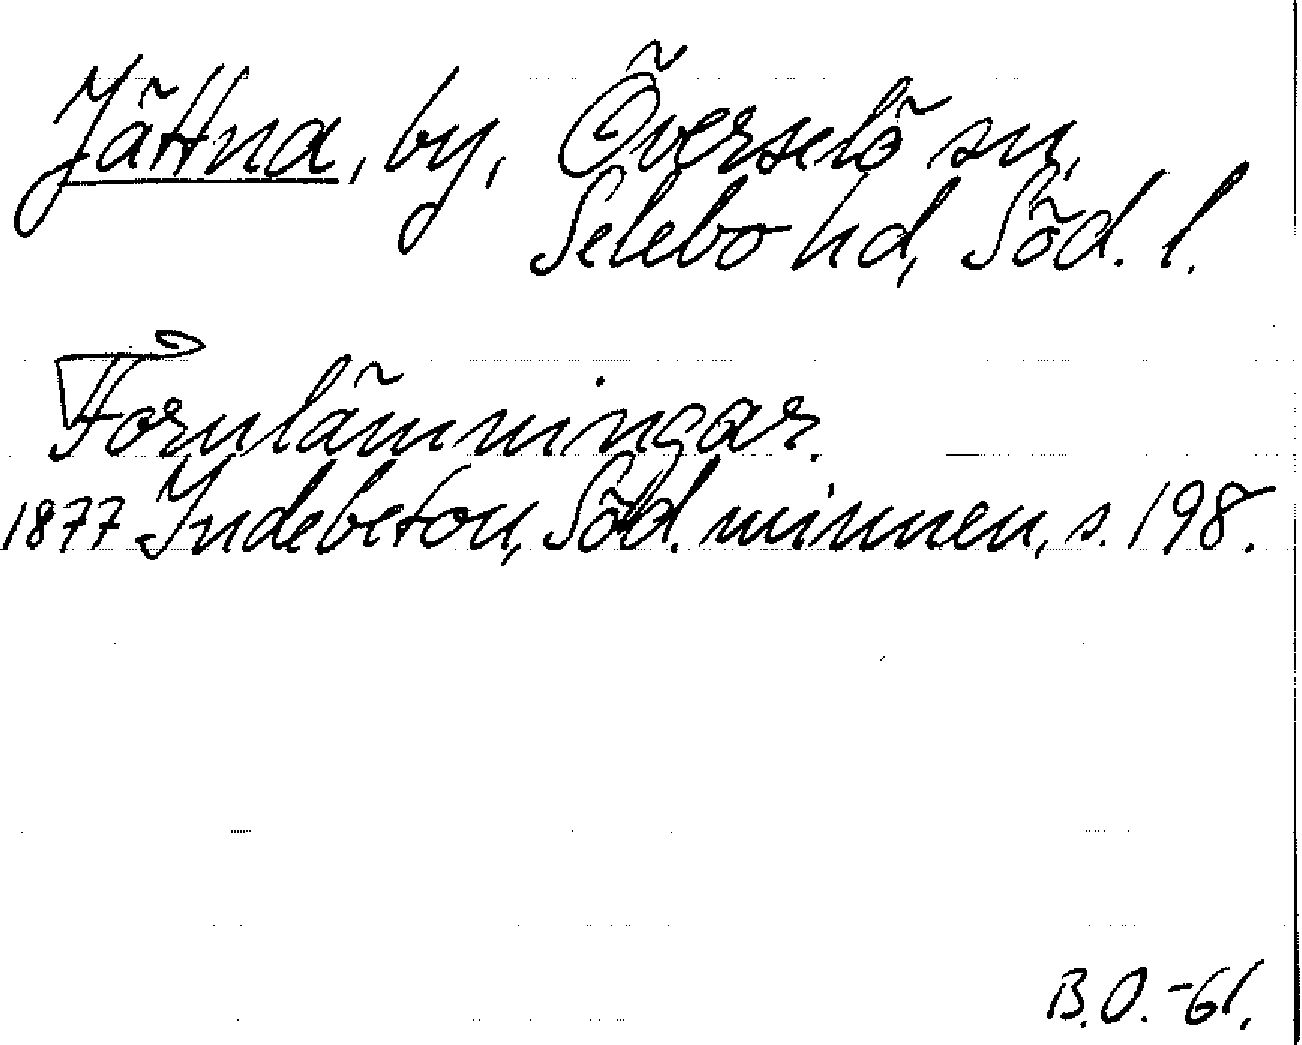 Jättna, by, Överselö sn,
Selebo hd, Söd. l.
Fornlämningar.
1877 Indebetou, Söd. minnen, s. 198.
B.O. -61.